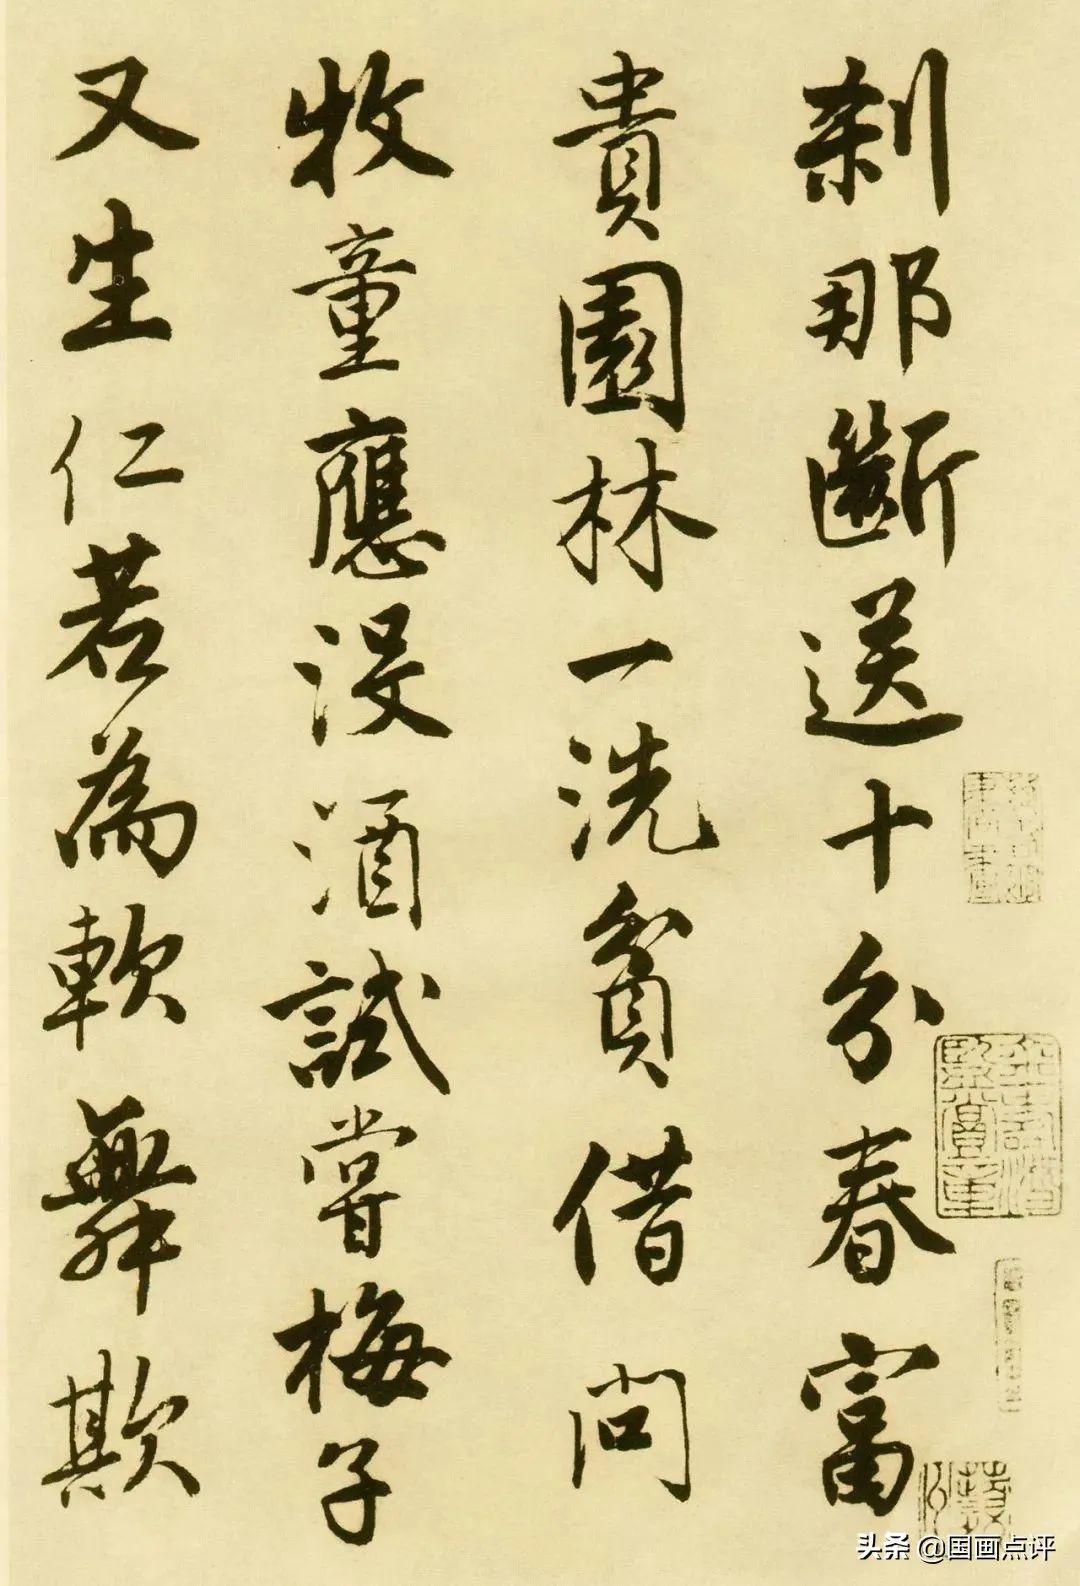 刹那斷送十分春富
貴園林一洗貧借問
牧童應沒酒試嘗梅子
又生仁若為軟舞欺
头条 @国画点评